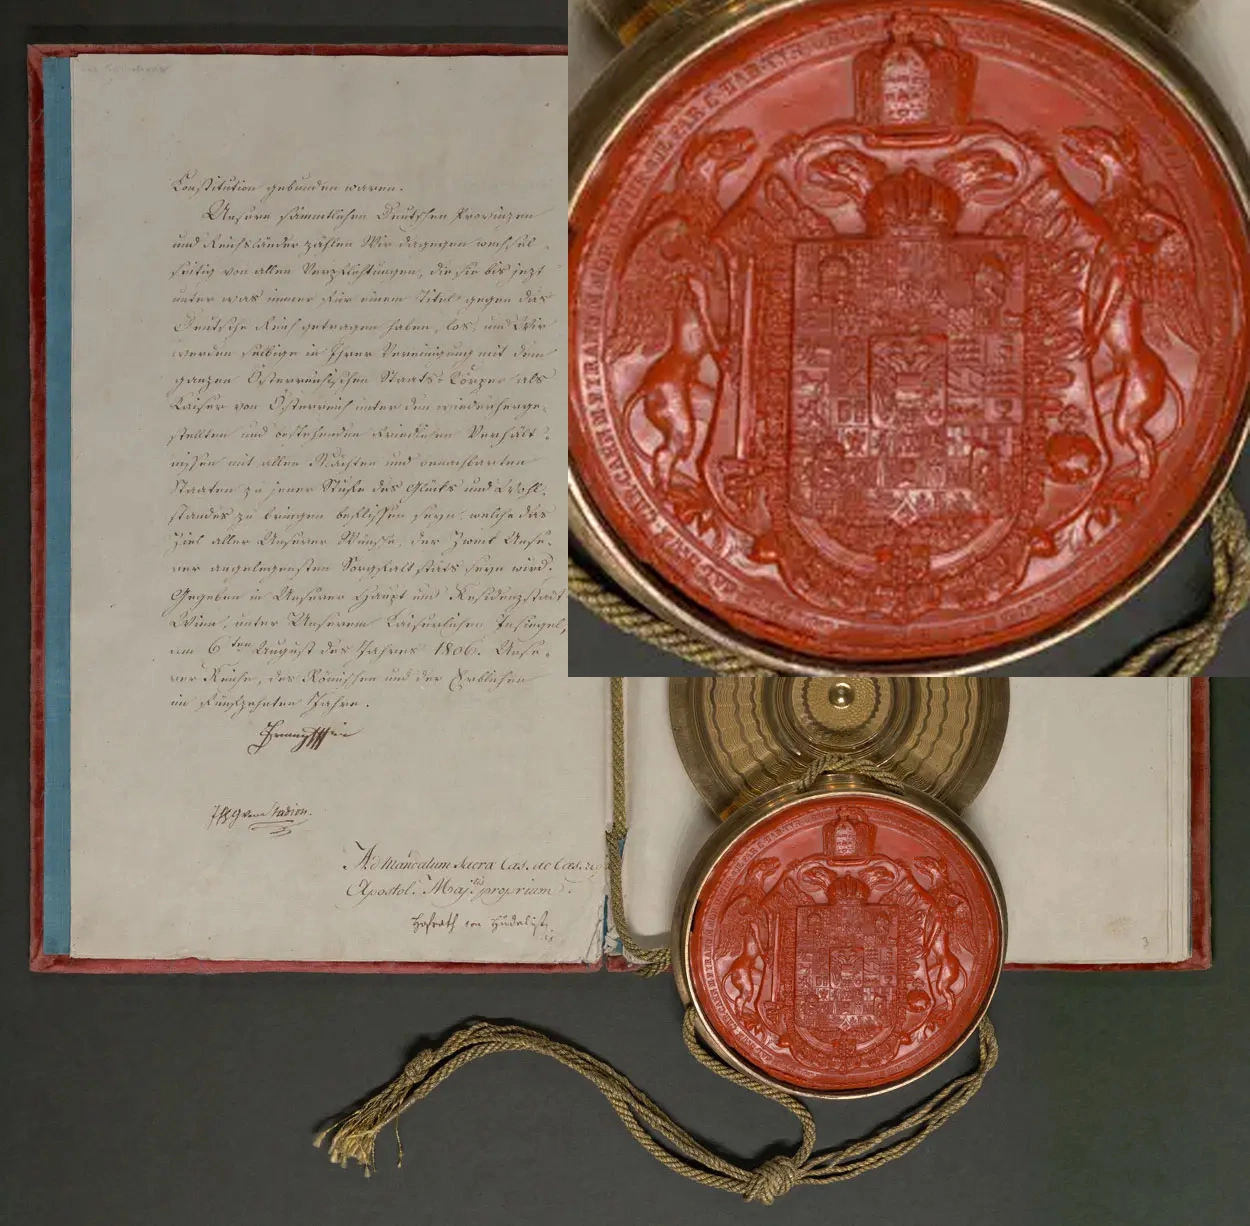 Constitution gebunden waren.
Unsere sämmtlichen Deutschen Provinzen
und Reichsländer zählen Wir dagegen wechsel-
seitig von allen Verpflichtungen, die sie bis jezt
unter was immer für einem Titel gegen das
Deutsche Reich getragen haben, los, und Wir
werden selbige in Ihrer Vereinigung mit dem
ganzen Österreichischen Staats-Körper als
Kaiser von Österreich unter den wiederherge-
stellten und bestehenden friedlichen Verhält-
nissen mit allen Mächten und benachbarten
Staaten zu jener Stufe des Glücks und Wohl-
standes zu bringen beflissen seyn, welche das
Ziel aller Unserer Wünsche, der Zweck Unse-
rer angelegensten Sorgfalt stäts seyn wird.
Gegeben in Unserer Haupt und Residenzstadt
Wien, unter Unserem Kaiserlichen Insiegel,
am 6ten August des Jahres 1806. Unse-
rer Reiche, des Römischen und der Erblichen
im Fünfzehnten Jahre.
Franz
Stadion.
Ad Mandatum Sacra Cas. ac Cæs.
Apostol. Maj.tis proprium.
Hofrath von Hudelist
3